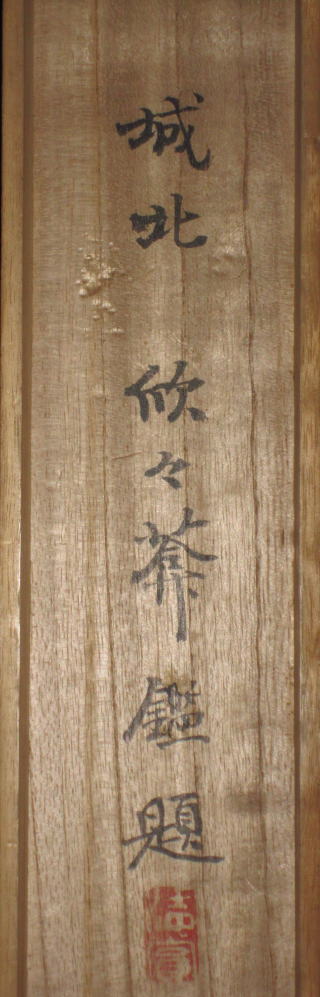 城北 欣々莽鑑題